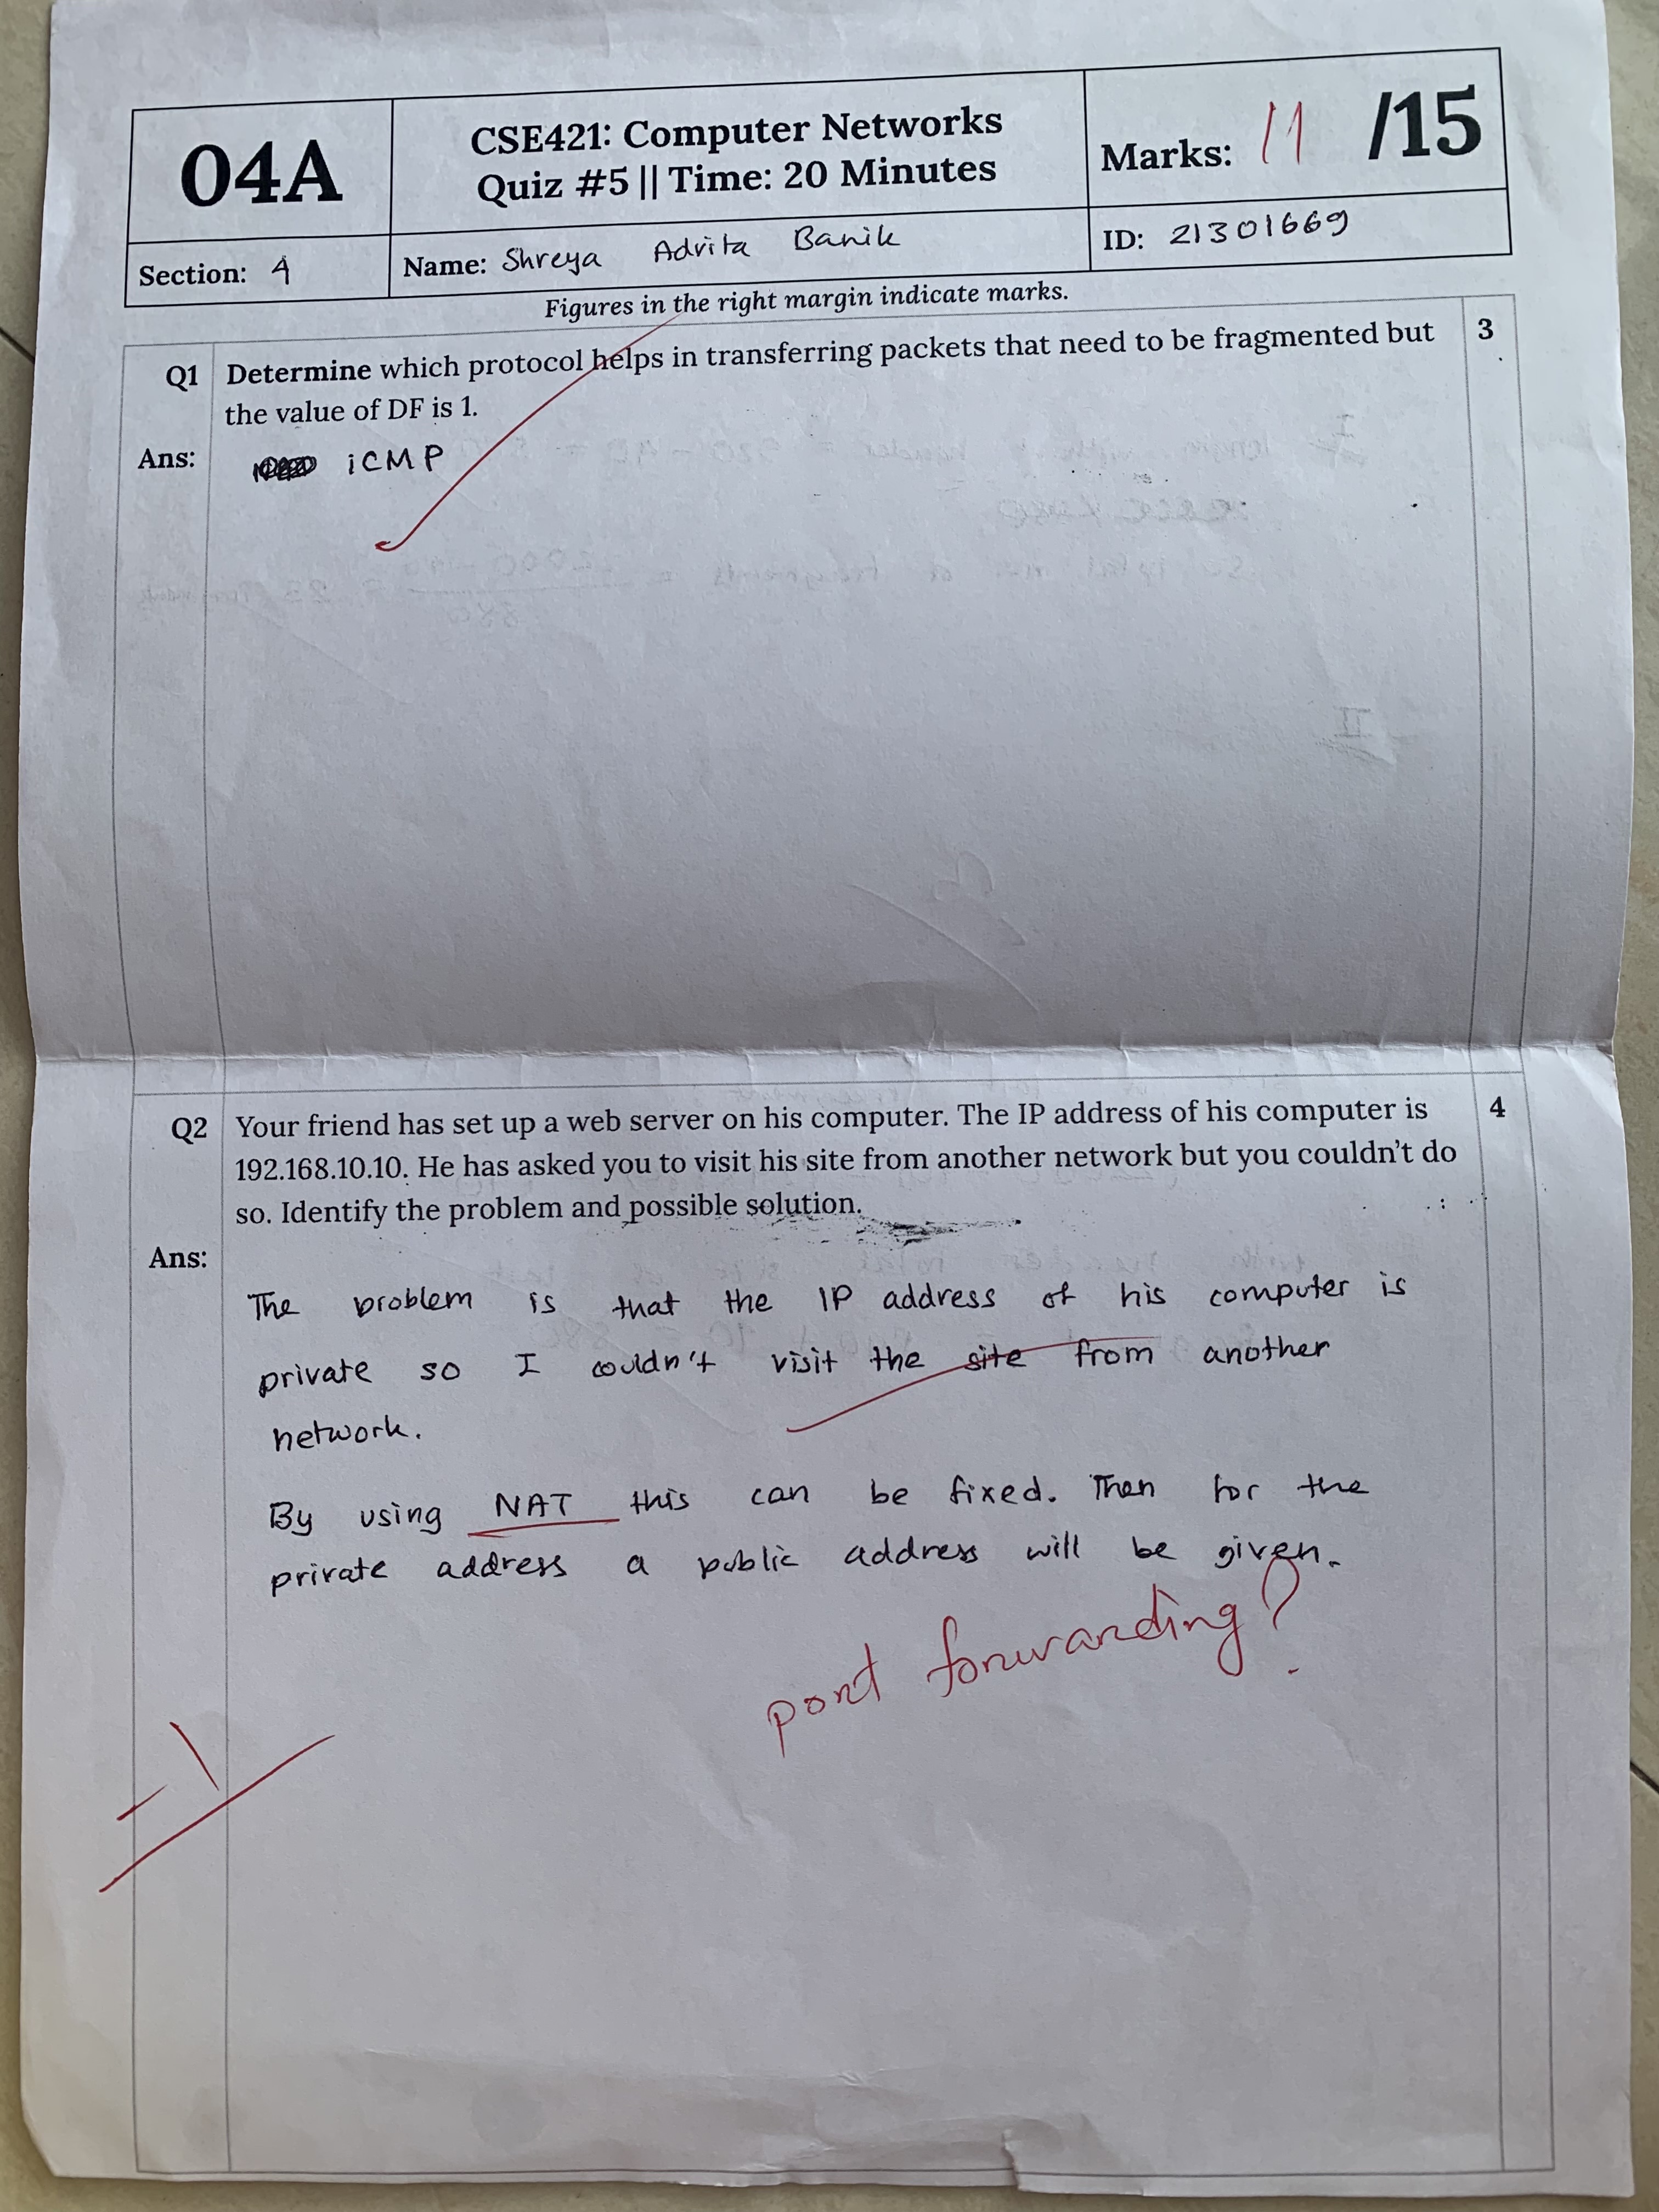 04A
CSE421: Computer Networks
Quiz #5 || Time: 20 Minutes
Marks: 11 /15
Section: 4
Name: Shreya Advita Banik
ID: 21301669
Figures in the right margin indicate marks.
Q1 Determine which protocol helps in transferring packets that need to be fragmented but 3
the value of DF is 1.
Ans: iCMP
Q2 Your friend has set up a web server on his computer. The IP address of his computer is 4
192.168.10.10. He has asked you to visit his site from another network but you couldn't do
so. Identify the problem and possible solution.
Ans:
The problem is that the IP address of his computer is
private so I couldn't visit the site from another
network.
By using NAT this can be fixed. Then for the
private address a public address will be given.
port forwarding?
-1